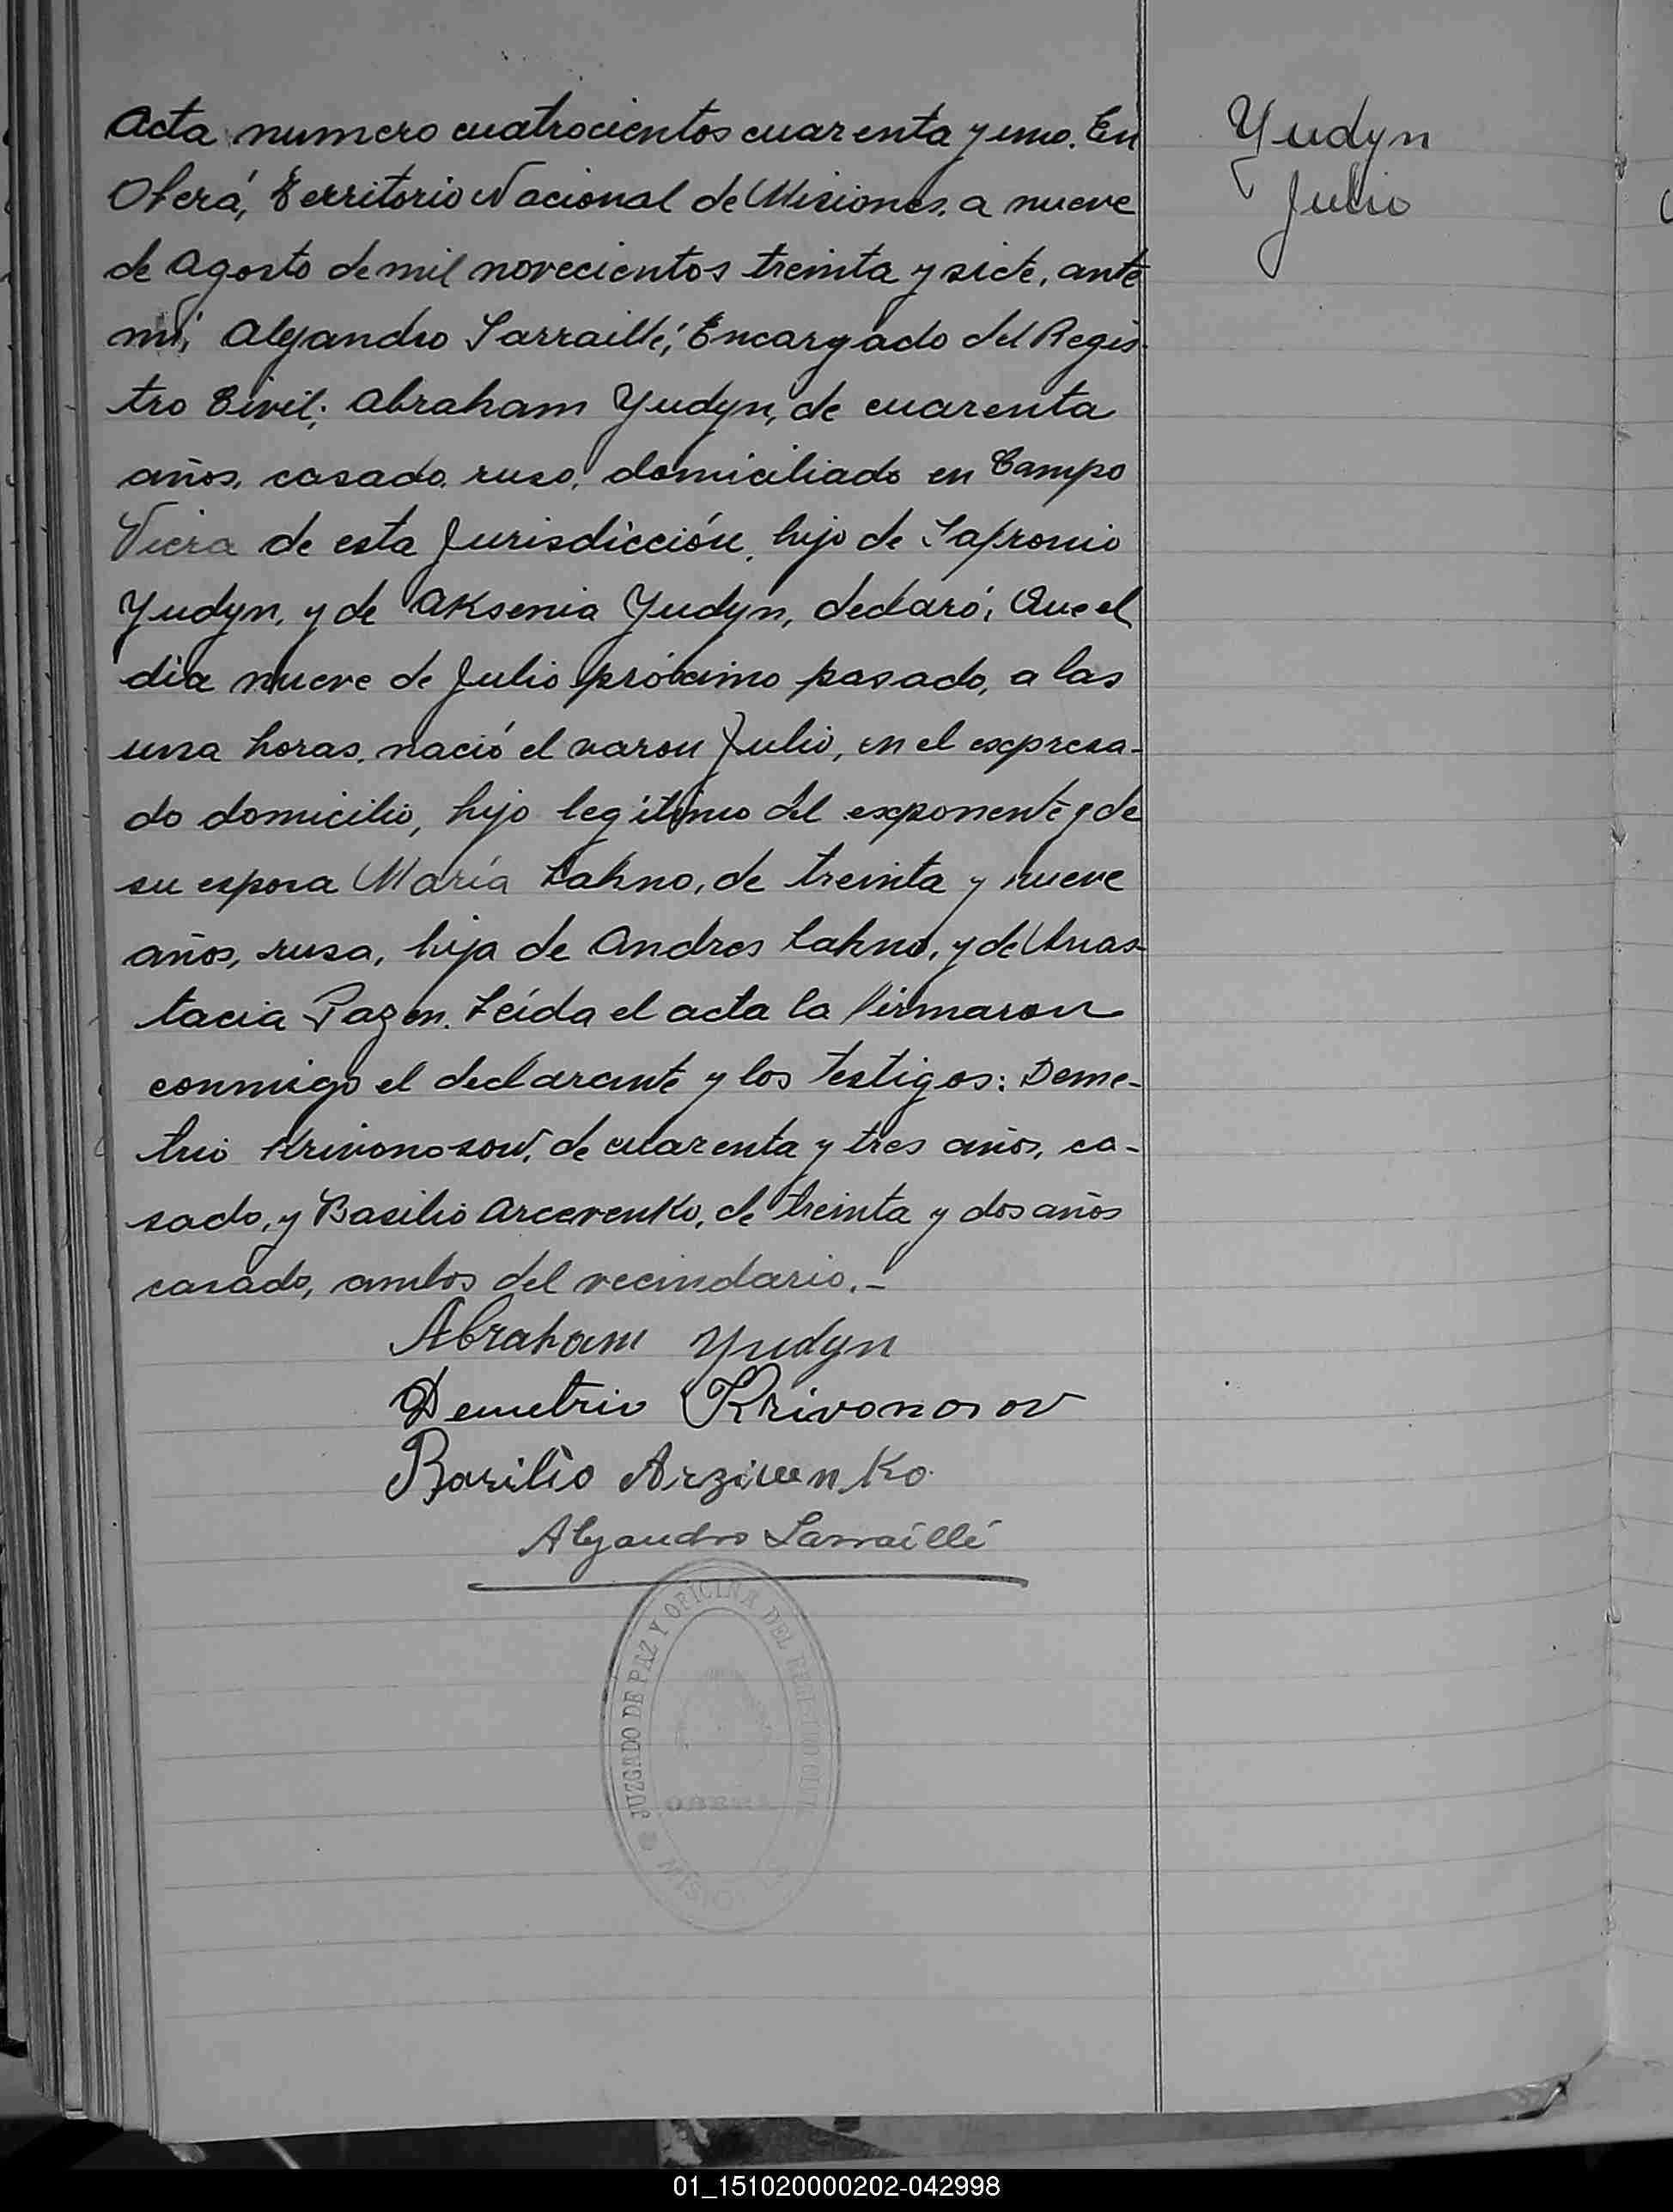 Acta numero cuatrocientos cuarenta y uno. En
Oberá, Territorio Nacional de Misiones, a nueve
de Agosto de mil novecientos treinta y siete, ante
mi, Alejandro Sarraillé, Encargado del Regis-
tro Civil; Abraham Yudyn, de cuarenta
años, casado, ruso, domiciliado en Campo
Viera de esta Jurisdicción, hijo de Safronio
Yudyn, y de Aksenia Yudyn, declaró; Que el
dia nueve de Julio próximo pasado, a las
una horas, nació el varon Julio, en el expresa-
do domicilio, hijo legítimo del exponente y de
su esposa María Lahno, de treinta y nueve
años, rusa, hija de Andres Lahno, y de Anas-
tacia Pazen. Leída el acta la firmaron
conmigo el declarante y los testigos: Deme-
trio Krivonosow, de cuarenta y tres años, ca-
sado, y Basilio Arcevenko, de treinta y dos años
casado, ambos del vecindario.-
Abraham Yudyn
Demetrio Krivonosov
Basilio Arziwenko
Alejandro Sarraillé
JUZGADO DE PAZ Y OFICINA DEL REGISTRO CIVIL
OBERA
MISIONES
Yudyn
Julio
01_151020000202-042998